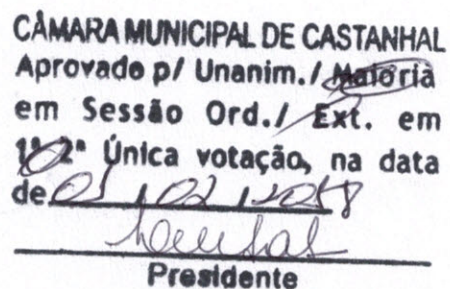 CÂMARA MUNICIPAL DE CASTANHAL
Aprovado p/ Unanim./ Maioria
em Sessão Ord./ Ext. em
1ª 2ª Única votação, na data
de 01 / 02 / 2018
Presidente